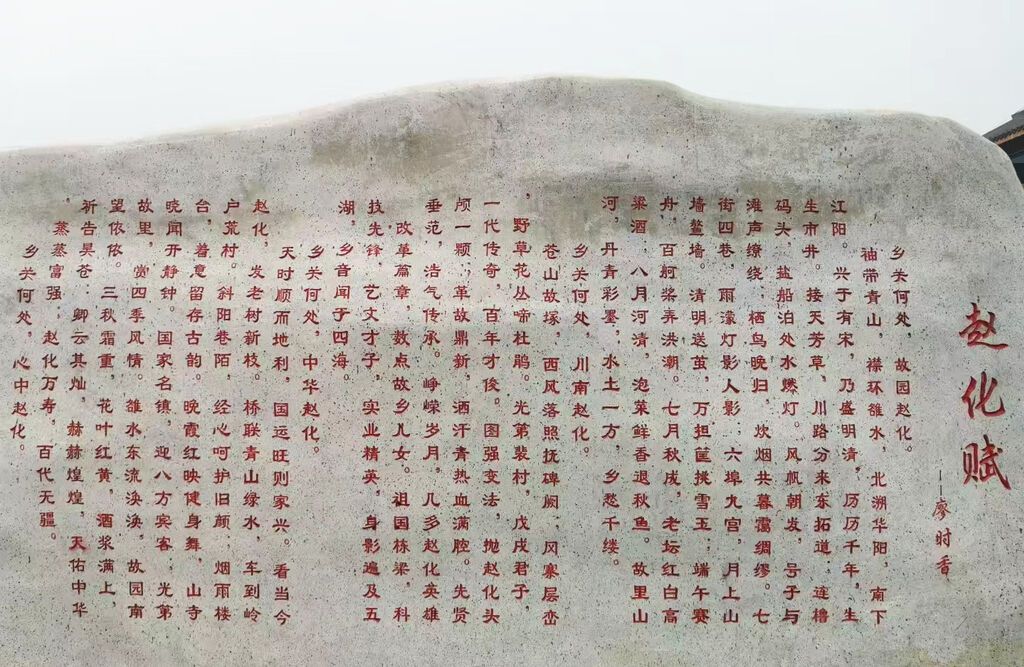 赵化赋
——廖时香
乡关何处,故园赵化。
袖带青山,襟环雒水,北溯华阳,南下
江阳。兴于有宋,乃盛明清,历历千年,生
生市井。接天芳草,川路分来东拓道,连橹
码头,盐船泊处水燃灯。风帆朝发,号子与
滩声缭绕;栖鸟晚归,炊烟共暮霭绸缪。七
街四巷,雨濛灯影人影;六埠九宫,月上山
墙鳌墙。清明送茧,万担筐挑雪玉,端午赛
舟,百舸桨弄洪潮。七月秋成,老坛红白高
粱酒,八月河清,泡菜鲜香退秋鱼。故里山
河,丹青彩墨,水土一方,乡愁千缕。
乡关何处,川南赵化。
苍山故塚,西风落照抚碑阙,风寨层峦
,野草花丛啼杜鹃。光第裴村,戊戌君子,
一代传奇,百年才俊。图强变法,抛赵化头
颅一颗;革故鼎新,洒汗青热血满腔。先贤
垂范,浩气传承。峥嵘岁月,几多赵化英雄
,改革篇章,数点故乡儿女。祖国栋梁,科
技先锋,艺文才子,实业精英,身影遍及五
湖,乡音闻于四海。
乡关何处,中华赵化。
天时顺而地利,国运旺则家兴。看当今
赵化,发老树新枝。桥联青山绿水,车到岭
户荒村。斜阳巷陌,经心呵护旧颜,烟雨楼
台,着意留存古韵。晚霞红映健身舞,山寺
晓闻开静钟。国家名镇,迎八方宾客,光第
故里,赏四季风情。雒水东流涣涣,故园南
望依依。三秋霜重,花叶红黄,酒浆满上,
祈告昊苍:卿云其灿,赫赫煌煌,天佑中华
,蒸蒸富强;赵化万寿,百代无疆。
乡关何处,心中赵化。